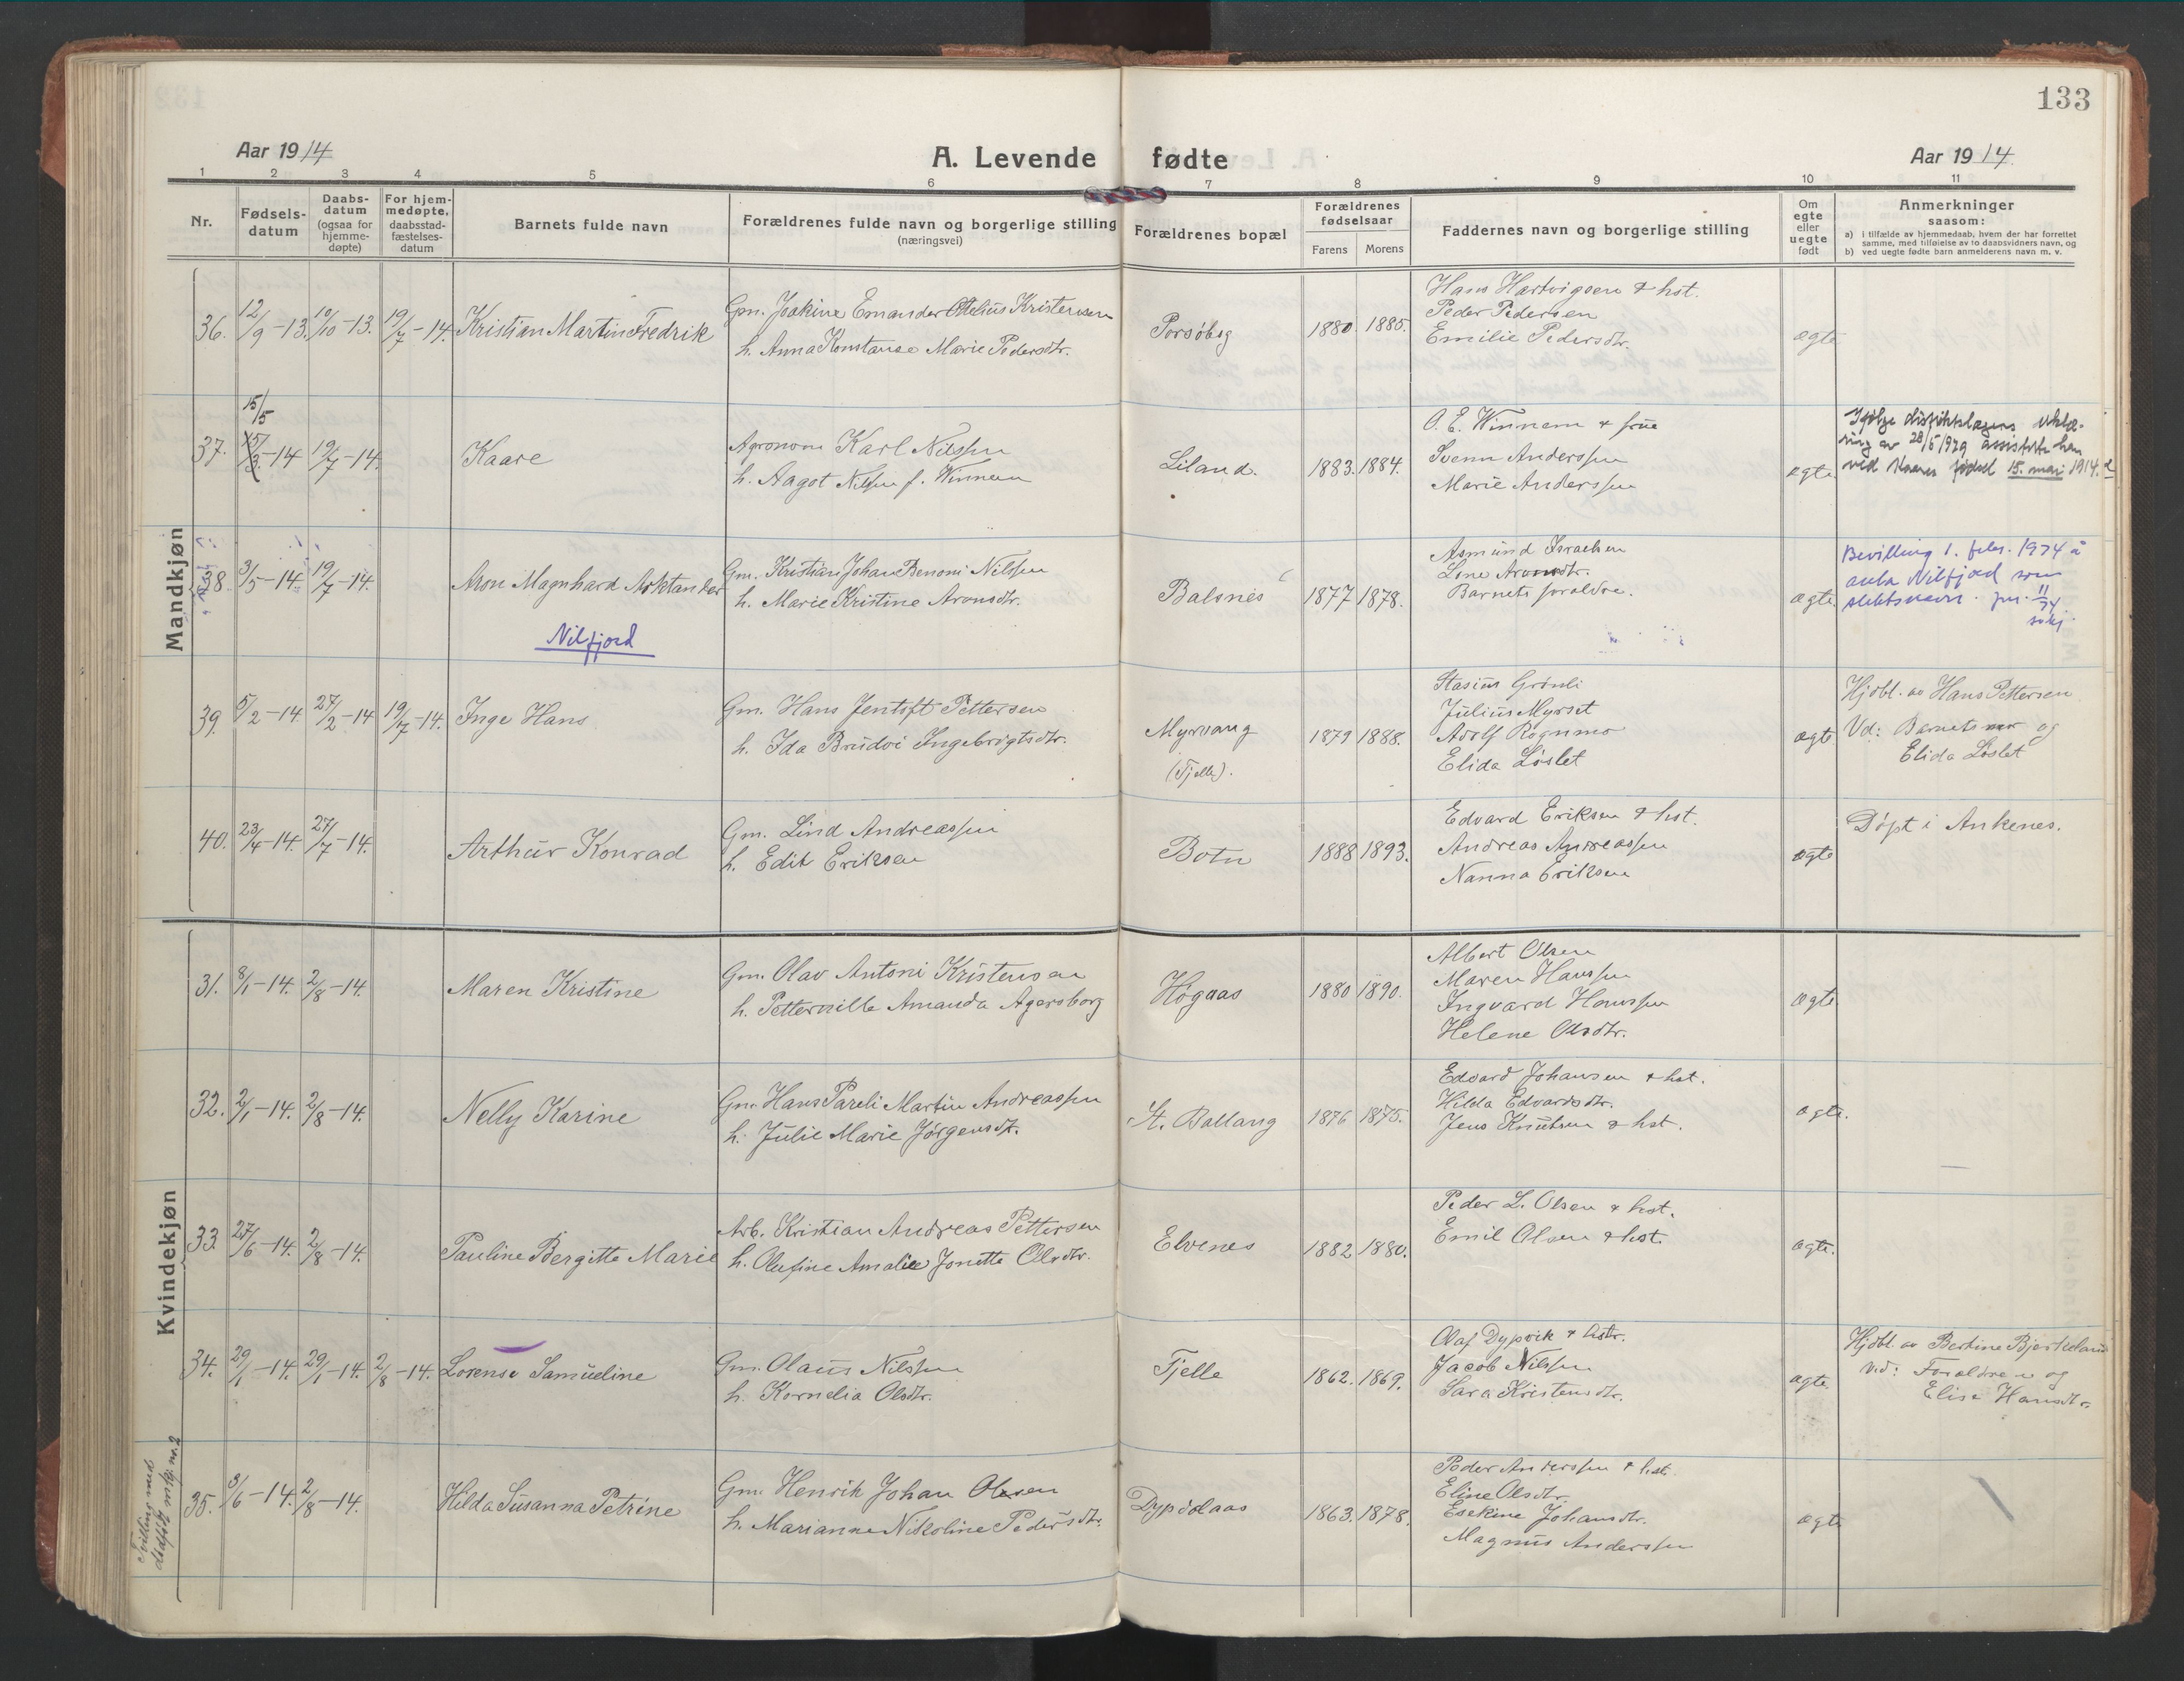 133
Aar 1914
A. Levende fødte
Aar 1914
1 2 3 4 5 6 7 8 9 10 11
Nr.
Fødsels-
datum
Daabs-
datum
(ogsaa for
hjemme-
døpte)
For hjem-
medøpte,
daabsstad-
fæstelses-
datum
Barnets fulde navn
Forældrenes fulde navn og borgerlige stilling
(næringsvei)
Forældrenes bopæl
Forældrenes
fødselsaar
Farens
Morens
Faddernes navn og borgerlige stilling
Om
egte
eller
uegte
født
Anmerkninger
saasom:
a) i tilfælde av hjemmedaab, hvem der har forrettet
samme, med tilføielse av to daabsvidners navn, og
b) ved uegte fødte barn anmelderens navn m. v.
Mandkjøn
36. 12/9-13. 10/10-13. 19/7-14. Kristian Martin Fredrik
Gm. Joakine Emander Ottelius Kristensen
h. Anna Konstanse Marie Pedersdtr.
Porsøbeg 1880. 1885.
Hans Hartvigsen & hst.
Peder Pedersen
Emilie Pedersdtr.
ægte
15/5
37. 15/3-14 19/7-14. Kaare
Agronom Karl Nilssen
h. Aagot Nilssen f. Winnem
Liland. 1883. 1884.
O. E. Winnem & frue
Svenn Anderssen
Marie Anderssen
ægte
Ifølge distriktslægens erklæ-
ring av 28/5 1929 assisterte han
ved Kaares fødsel 15. mai 1914.
38 3/5-14. 19/7-14. Aron Magnhard Arktander
Nilfjord
Gm. Kristian Johan Benoni Nilssen
h. Marie Kristine Aronsdtr.
Balsnes 1877 1878.
Asmund Israelsen
Lone Aronsdtr.
Barnets foraldre.
ægte
Bevilling 1. febr. 1974 å
anta Nilfjord som
slektsnavn. jnr. 11/74
39. 5/2-14 27/2-14 19/7-14. Inge Hans
Gm. Hans Jentoft Pettersen
h. Ida Brudvi Ingebrigtsdtr.
Myrvang
(Tjelle).
1879 1888.
Stasius Grönli
Julius Myrset
Adolf Rognmo
Elida Løslet
ægte
Hjdbt. av Hans Pettersen
Vd: Barnets mor og
Elida Løslet
40. 23/4-14. 27/7-14. Arthur Konrad
Gm. Lind Andreassen
h. Edit Eriksen
Botn 1888 1893.
Edvard Eriksen & hst.
Andreas Andreassen
Nanna Eriksen
ægte
Døpt i Ankenes.
Kvindekjøn
31. 8/1-14. 2/8-14. Maren Kristine
Gm. Olav Antoni Kristensen
h. Petternille Amanda Agersborg
Høgaas 1880 1890.
Albert Olsen
Maren Hanssen
Ingvard Hanssen
Helene Olsdtr.
ægte
32. 2/1-14. 2/8-14. Nelly Karine
Gm. Hans Pareli Martin Andreassen
h. Julie Marie Jörgensdt.
St. Ballang 1876 1875.
Edvard Johansen & hst.
Hilda Edvardsdtr.
Jens Knutsen & hst.
ægte.
33. 27/6-14. 2/8-14. Pauline Bergitte Marie
Arb. Kristian Andreas Pettersen
h. Olufine Amalie Jonette Olsdtr.
Elvenes 1882 1880.
Peder L. Olsen & hst.
Emil Olsen & hst.
ægte.
34. 29/1-14. 29/1-14. 2/8-14. Lorense Samueline
Gm. Olaus Nilssen
h. Kornelia Olsdtr.
Tjelle 1862. 1869.
Olaf Dypvik & hstr.
Jacob Nilssen
Sara Kristensdtr.
ægte
Hjdbt. av Bertine Bjerkeland
Vid: Forældrene og
Elise Hansdtr.
Tvilling med
dødfødt mskj. nr. 2
35. 3/6-14. 2/8-14. Hilda Susanna Petrine
Gm. Henrik Johan Olsen
h. Marianne Nikoline Pedersdtr.
Dypdlaas 1863. 1878.
Peder Anderssen & hst.
Eline Olsdtr.
Esekine Johansdtr.
Magnus Anderssen
ægte